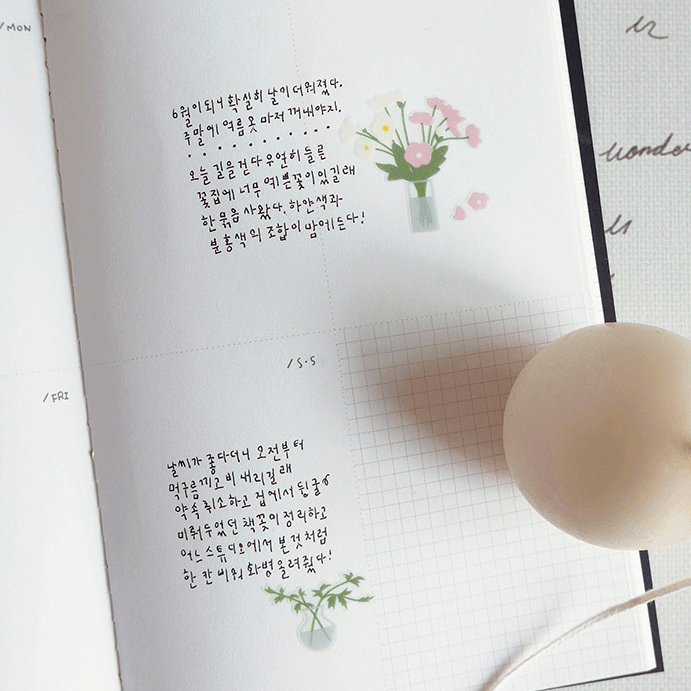 /MON
6월이 되니 확실히 날이 더워졌다.
주말에 여름 옷 마저 꺼내야지.
오늘 길을 걷다 우연히 들른
꽃집에 너무 예쁜 꽃이 있길래
한 묶음 사왔다. 하얀색과
분홍색의 조합이 맘에 든다!
/S·S
/FRI
날씨가 좋다더니 오전부터
먹구름끼고 비 내리길래
약속 취소하고 집에서 뒹굴
미뤄두었던 책꽂이 정리하고
어느 스튜디오에서 본 것처럼
한 칸 비워 화병 올려줬다!
wonder